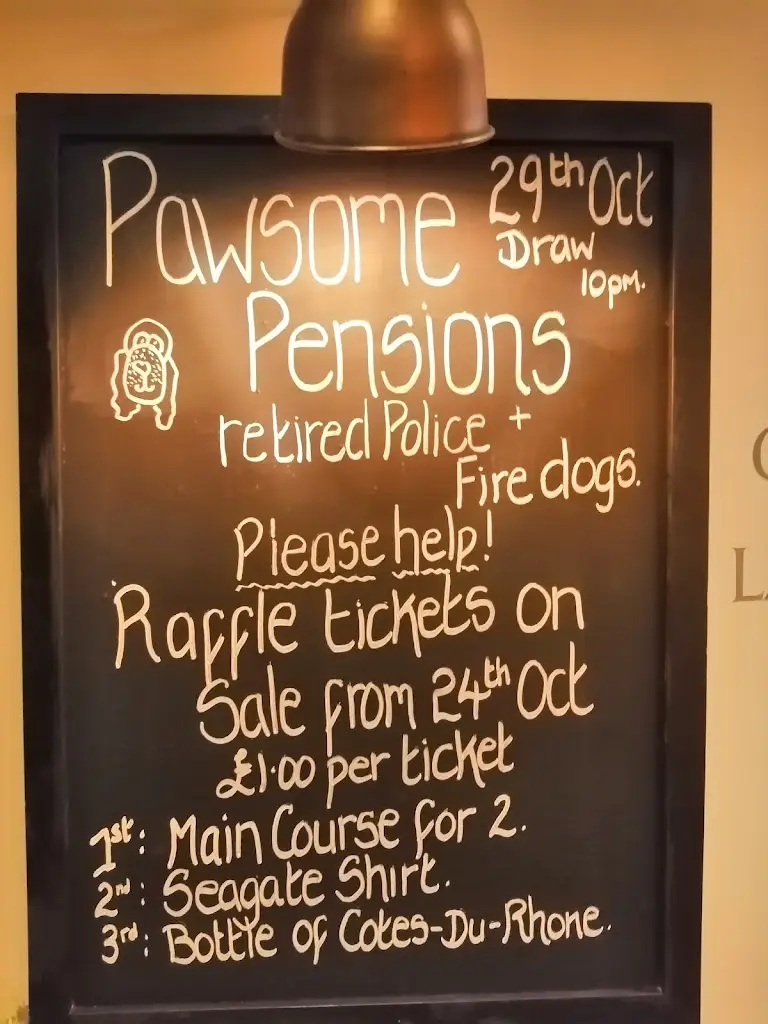 Pawsome
29th Oct
Draw
10pm.
Pensions
retired Police +
Fire dogs.
Please help!
Raffle tickets on
Sale from 24th Oct
£1.00 per ticket
1st: Main Course for 2.
2nd: Seagate Shirt.
3rd: Bottle of Cotes-Du-Rhone.